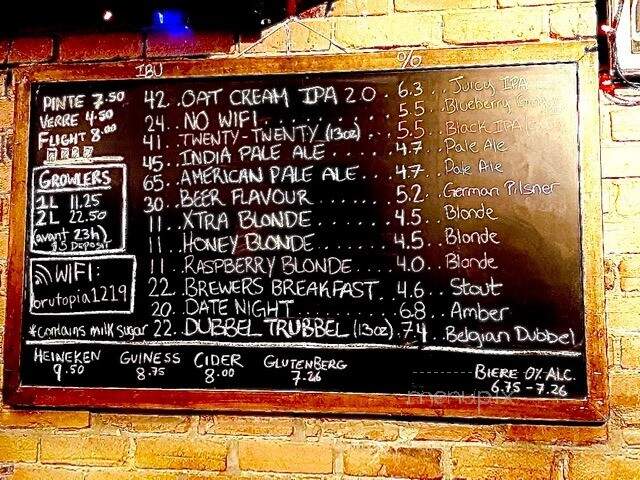 IBU %
PINTE 7.50
VERRE 4.50
FLIGHT 8.00
GROWLERS
1L 11.25
2L 22.50
(avant 23h)
DEPOSIT
WIFI:
brutopia1219
*contains milk sugar
42..OAT CREAM IPA 2.0 .6.3..Juicy IPA
24..NO WIFI........5.5..Blueberry
41..TWENTY-TWENTY (13oz)...5.5..Black IPA
45..INDIA PALE ALE....4.7..Pale Ale
65..AMERICAN PALE ALE...4.7..Pale Ale
30..BEER FLAVOUR......5.2..German Pilsner
11..XTRA BLONDE......4.5..Blonde
11..HONEY BLONDE.....4.5..Blonde
11..RASPBERRY BLONDE...4.0..Blonde
22..BREWERS BREAKFAST..4.6..Stout
20..DATE NIGHT.......6.8..Amber
22..DUBBEL TRUBBEL (13oz).7.4..Belgian Dubbel
HEINEKEN GUINESS CIDER GLUTENBERG BIERE 0% ALC.
9.50 8.75 8.00 7.26 6.75-7.26
menupix